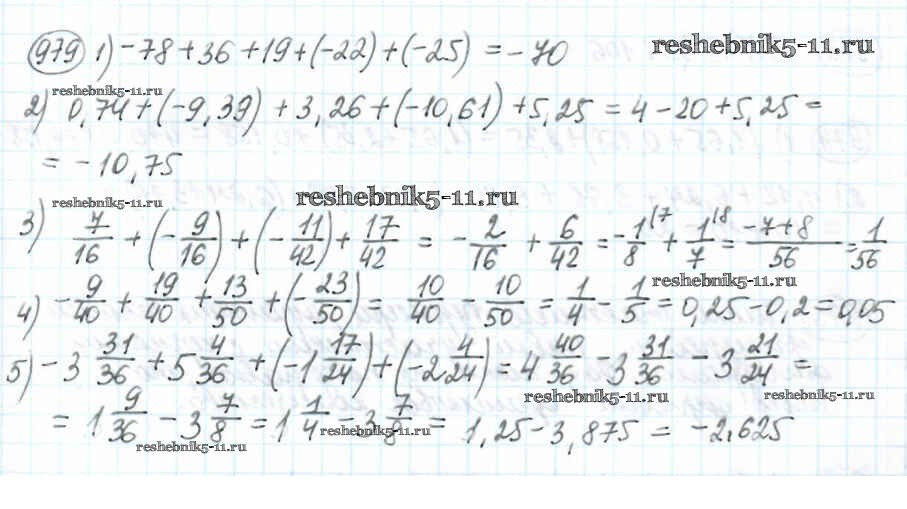 979 1) -78 + 36 + 19 + (-22) + (-25) = -70
reshebnik5-11.ru
reshebnik5-11.ru
2) 0,74 + (-9,39) + 3,26 + (-10,61) + 5,25 = 4 - 20 + 5,25 =
= -10,75
reshebnik5-11.ru
reshebnik5-11.ru
3) 7/16 + (-9/16) + (-11/42) + 17/42 = -2/16 + 6/42 = -1/8 (7 + 1/7 (8 = (-7+8)/56 = 1/56
reshebnik5-11.ru
4) -9/40 + 19/40 + 13/50 + (-23/50) = 10/40 - 10/50 = 1/4 - 1/5 = 0,25 - 0,2 = 0,05
5) -3 31/36 + 5 4/36 + (-1 17/24) + (-2 4/24) = 4 40/36 - 3 31/36 - 3 21/24 =
reshebnik5-11.ru
reshebnik5-11.ru
= 1 9/36 - 3 7/8 = 1 1/4 - 3 7/8 = 1,25 - 3,875 = -2,625
reshebnik5-11.ru
reshebnik5-11.ru